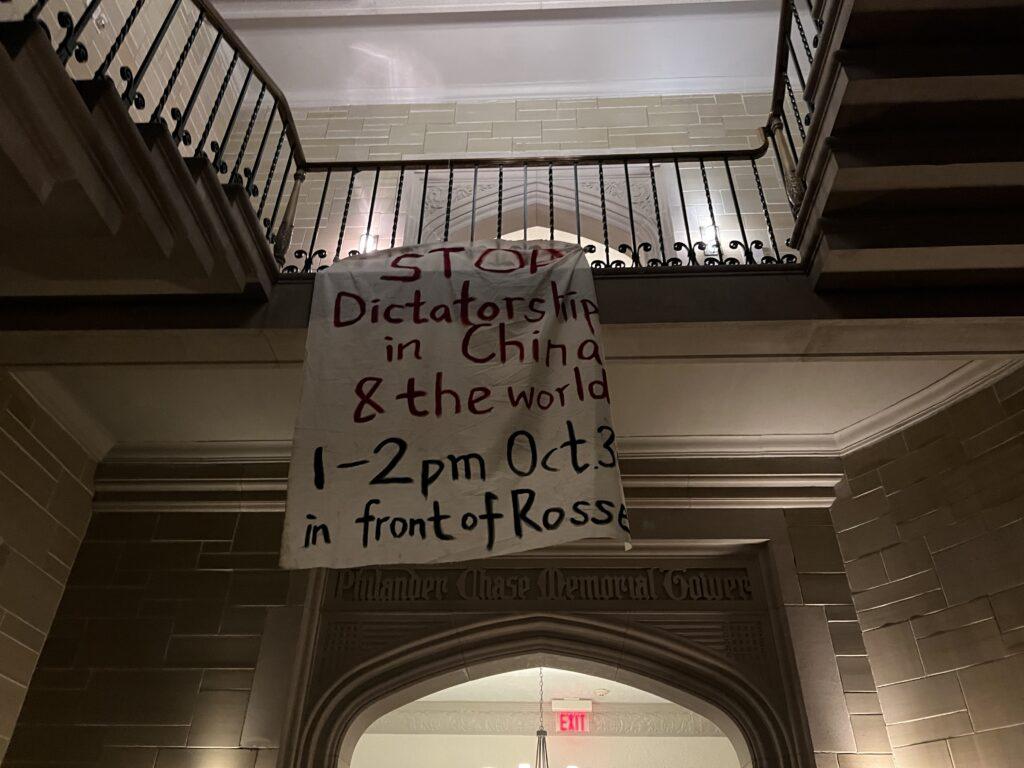 STOP
Dictatorship
in China
& the world
1-2pm Oct.3
in front of Rosse
Philander Chase Memorial Tower
EXIT